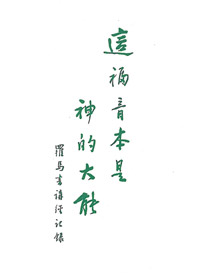 這福音本是
神的大能
羅馬書講經記錄